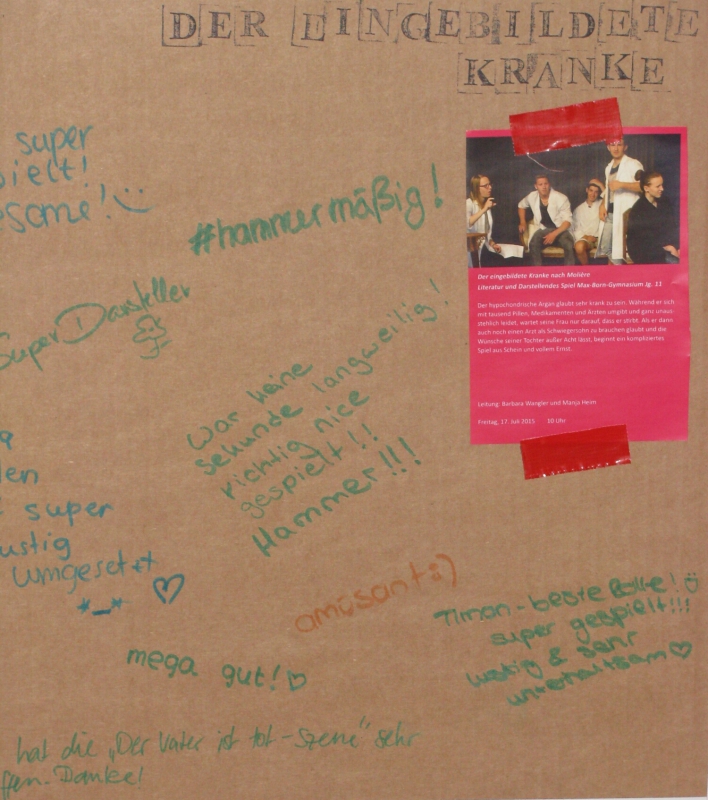 DER EINGEBILDETE
KRANKE
super
spielt!
esome! :)
#hammermäßig!
Der eingebildete Kranke nach Molière
Literatur und Darstellendes Spiel Max-Born-Gymnasium Jg. 11
Der hypochondrische Argan glaubt sehr krank zu sein. Während er sich
mit tausend Pillen, Medikamenten und Ärzten umgibt und ganz unaus-
stehlich leidet, wartet seine Frau nur darauf, dass er stirbt. Als er dann
auch noch einen Arzt als Schwiegersohn zu brauchen glaubt und die
Wünsche seiner Tochter außer Acht lässt, beginnt ein kompliziertes
Spiel aus Schein und vollem Ernst.
Leitung: Barbara Wangler und Manja Heim
Freitag, 17. Juli 2015 10 Uhr
Super Darsteller
War keine
sekunde langweilig!
richtig nice
gespielt!!
Hammer!!!
len
super
ustig
umgesetzt
*_* ♡
amüsant :)
Timon - beste Rolle! :)
super gespielt!!!
lustig & sehr
unterhaltsam ♡
mega gut! ♡
hat die „Der Vater ist tot - Szene" sehr
ffen - Danke!